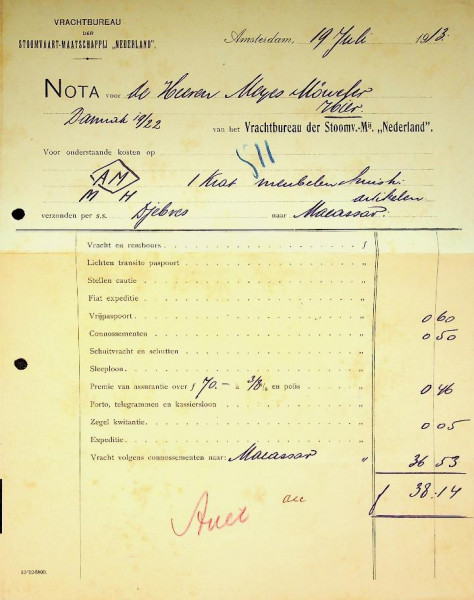 VRACHTBUREAU
DER
STOOMVAART-MAATSCHAPPIJ „NEDERLAND".
Amsterdam, 19 Juli 1913.
NOTA voor de Heeren Meyes
Hier.
Damrak 19/22 van het Vrachtbureau der Stoomv.-Mij. „Nederland".
Voor onderstaande kosten op
511
AM
M H
1 Krat meubelen
artikelen
verzonden per s.s. Djebres naar Macassar.
Vracht en rembours f
Lichten transito paspoort "
Stellen cautie "
Fiat expeditie "
Vrijpaspoort " 0 60
Connossementen " 0 50
Schuitvracht en schutten "
Sleeploon "
Premie van assurantie over f 70.- à 3/8 % en polis " 0 46
Porto, telegrammen en kassiersloon "
Zegel kwitantie " 0 05
Expeditie "
Vracht volgens connossementen naar: Macassar " 36 53
f 38.14